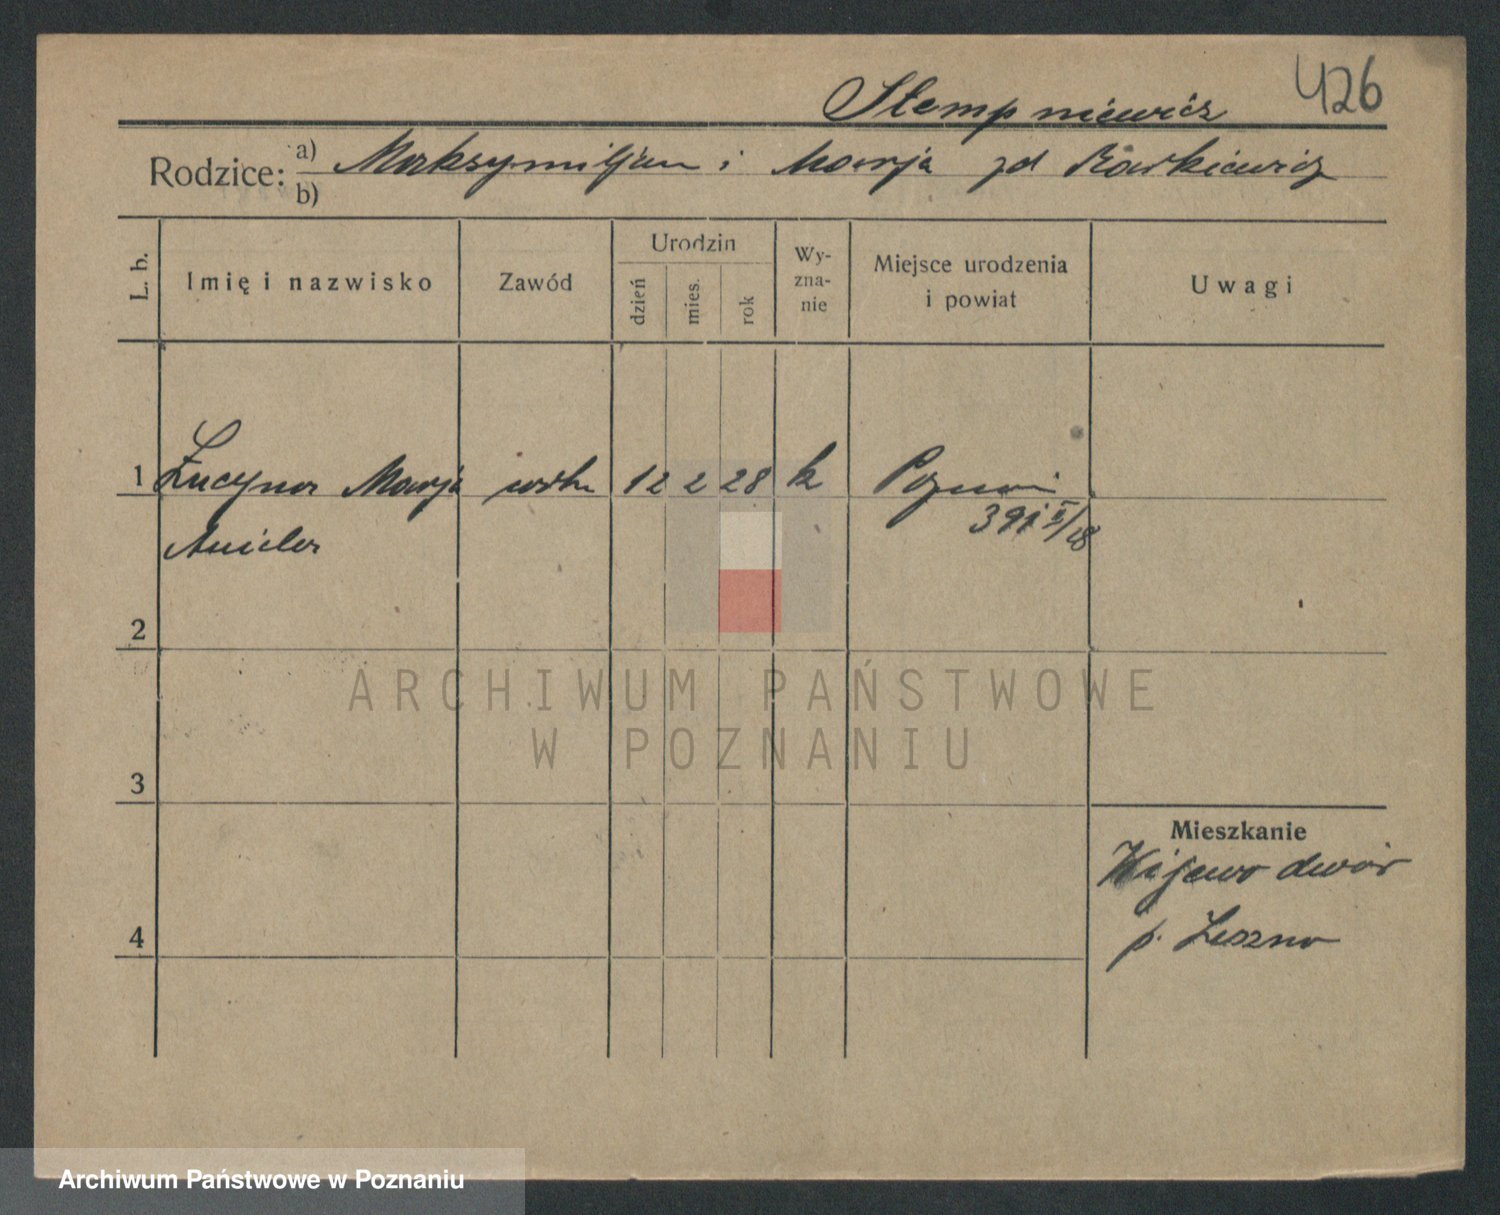 426
Stempniewicz
Rodzice: a) Maksymiljan i Marja zd Ratkiewicz
b)
L. b.
Imię i nazwisko
Zawód
Urodzin
dzień
mies.
rok
Wy-
zna-
nie
Miejsce urodzenia
i powiat
Uwagi
1 Lucyna Marja 12 2 28 k Poznań
Aniela 391 II/28
2
3
4
Mieszkanie
Kijewo dwór
p. Leszno
ARCHIWUM PAŃSTWOWE
W POZNANIU
Archiwum Państwowe w Poznaniu